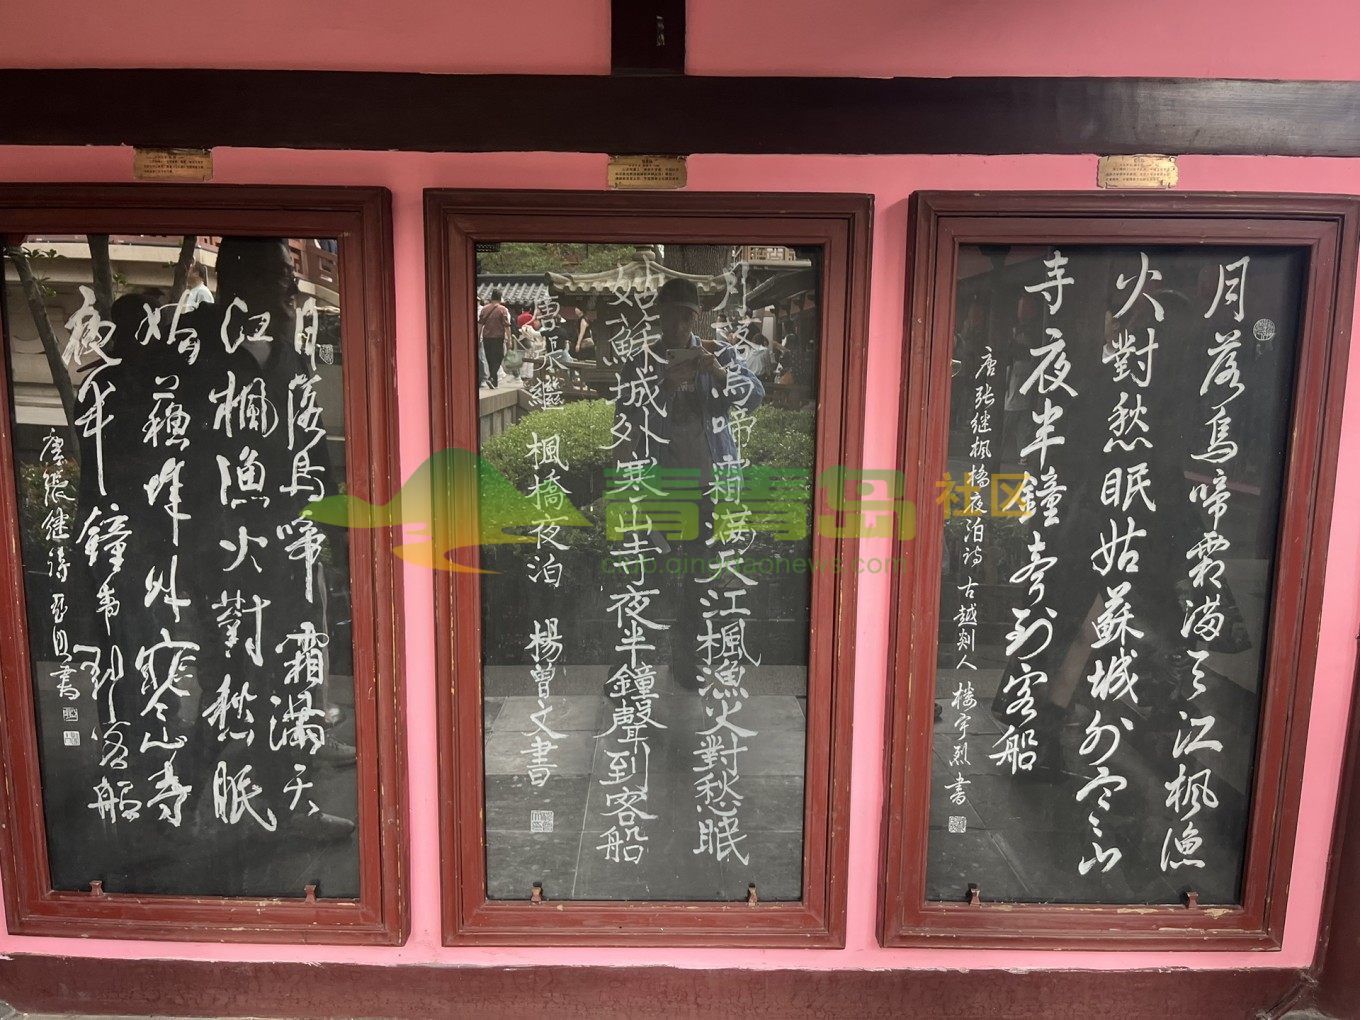 月落烏啼霜满天江枫漁
火對愁眠姑蘇城外寒山
寺夜半鐘声到客船
唐张继枫橋夜泊诗古越剡人楼宇烈书
月落烏啼霜满天江楓漁火對愁眠
姑蘇城外寒山寺夜半鐘聲到客船
唐張繼 楓橋夜泊 楊曾文書
月落烏啼霜滿天
江楓漁火對愁眠
姑蘇城外寒山寺
夜半鐘声到客船
唐張继詩 書
青青岛社区
club.qingdaonews.com